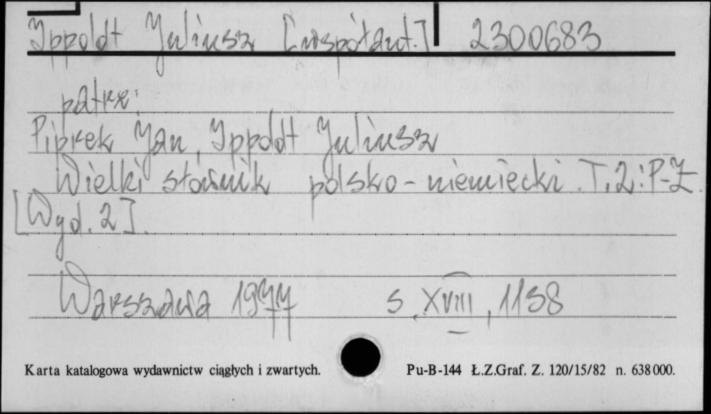 Ippoldt Juliusz [współaut.] 2300683
patrz:
Piprek Jan, Ippoldt Juliusz
Wielki słownik polsko-niemiecki. T. 2: P-Ż.
[Wyd. 2].
Warszawa 1977 s. XVIII, 1158
Karta katalogowa wydawnictw ciągłych i zwartych. Pu-B-144 Ł.Z.Graf. Z. 120/15/82 n. 638000.